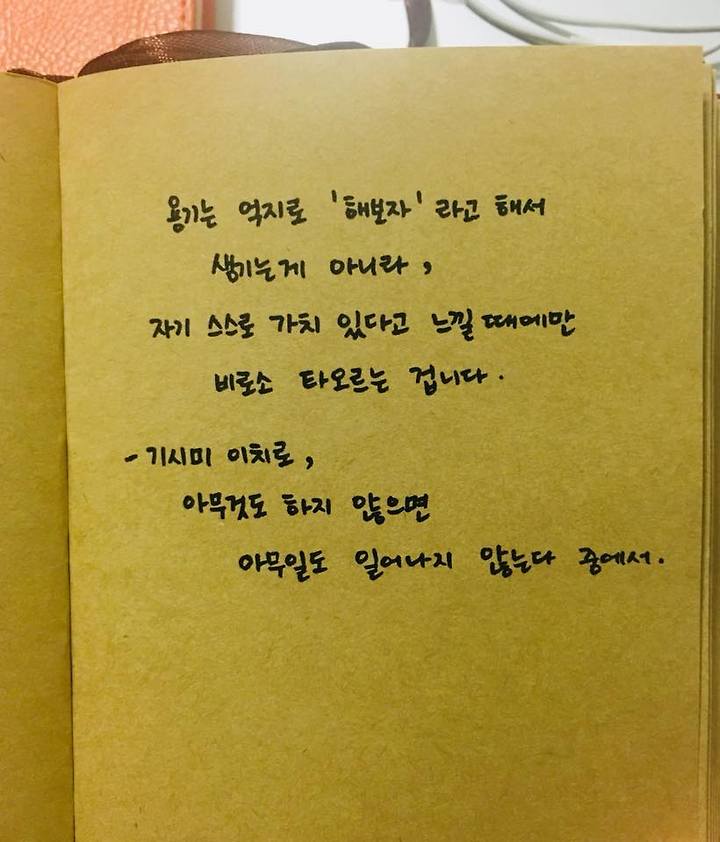 용기는 억지로 '해보자' 라고 해서
생기는게 아니라,
자기 스스로 가치 있다고 느낄 때에만
비로소 타오르는 겁니다.
- 기시미 이치로,
아무것도 하지 않으면
아무일도 일어나지 않는다 중에서.